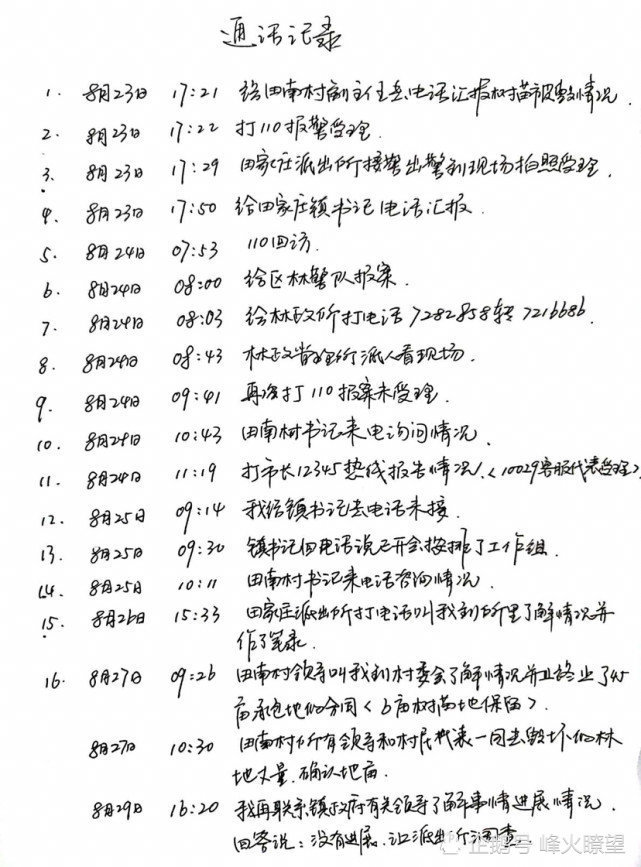 通话记录
1. 8月23日 17:21 给田南村副主任岳电话汇报树苗被毁情况
2. 8月23日 17:22 打110报警受理.
3. 8月23日 17:29 田家庄派出所接警出警到现场拍照受理.
4. 8月23日 17:50 给田家庄镇书记电话汇报.
5. 8月24日 07:53 110回访.
6. 8月24日 08:00 给区林警队报案.
7. 8月24日 08:03 给林政所打电话7282858转7216686.
8. 8月24日 08:43 林政管理所派人看现场.
9. 8月24日 09:41 再次打110报案未受理.
10. 8月24日 10:43 田南村书记来电询问情况.
11. 8月24日 11:19 打市长12345热线报告情况.<10029客服代表受理>.
12. 8月25日 09:14 我给镇书记去电话未接.
13. 8月25日 09:30 镇书记回电话说已开会按排了工作组.
14. 8月25日 10:11 田南村书记来电话咨询情况.
15. 8月26日 15:33 田家庄派出所打电话叫我到所里了解情况并
作了笔录.
16. 8月27日 09:26 田南村领导叫我到村委会了解情况并且终止了45
亩承包地的合同<6亩树苗地保留>.
8月27日 10:30 田南村所有领导和村民代表一同去毁坏的林
地丈量.确认地亩.
8月29日 16:20 我再联系镇政府有关领导了解事情进展情况.
回答说:没有进展.让派出所调查
企鹅号 峰火瞭望